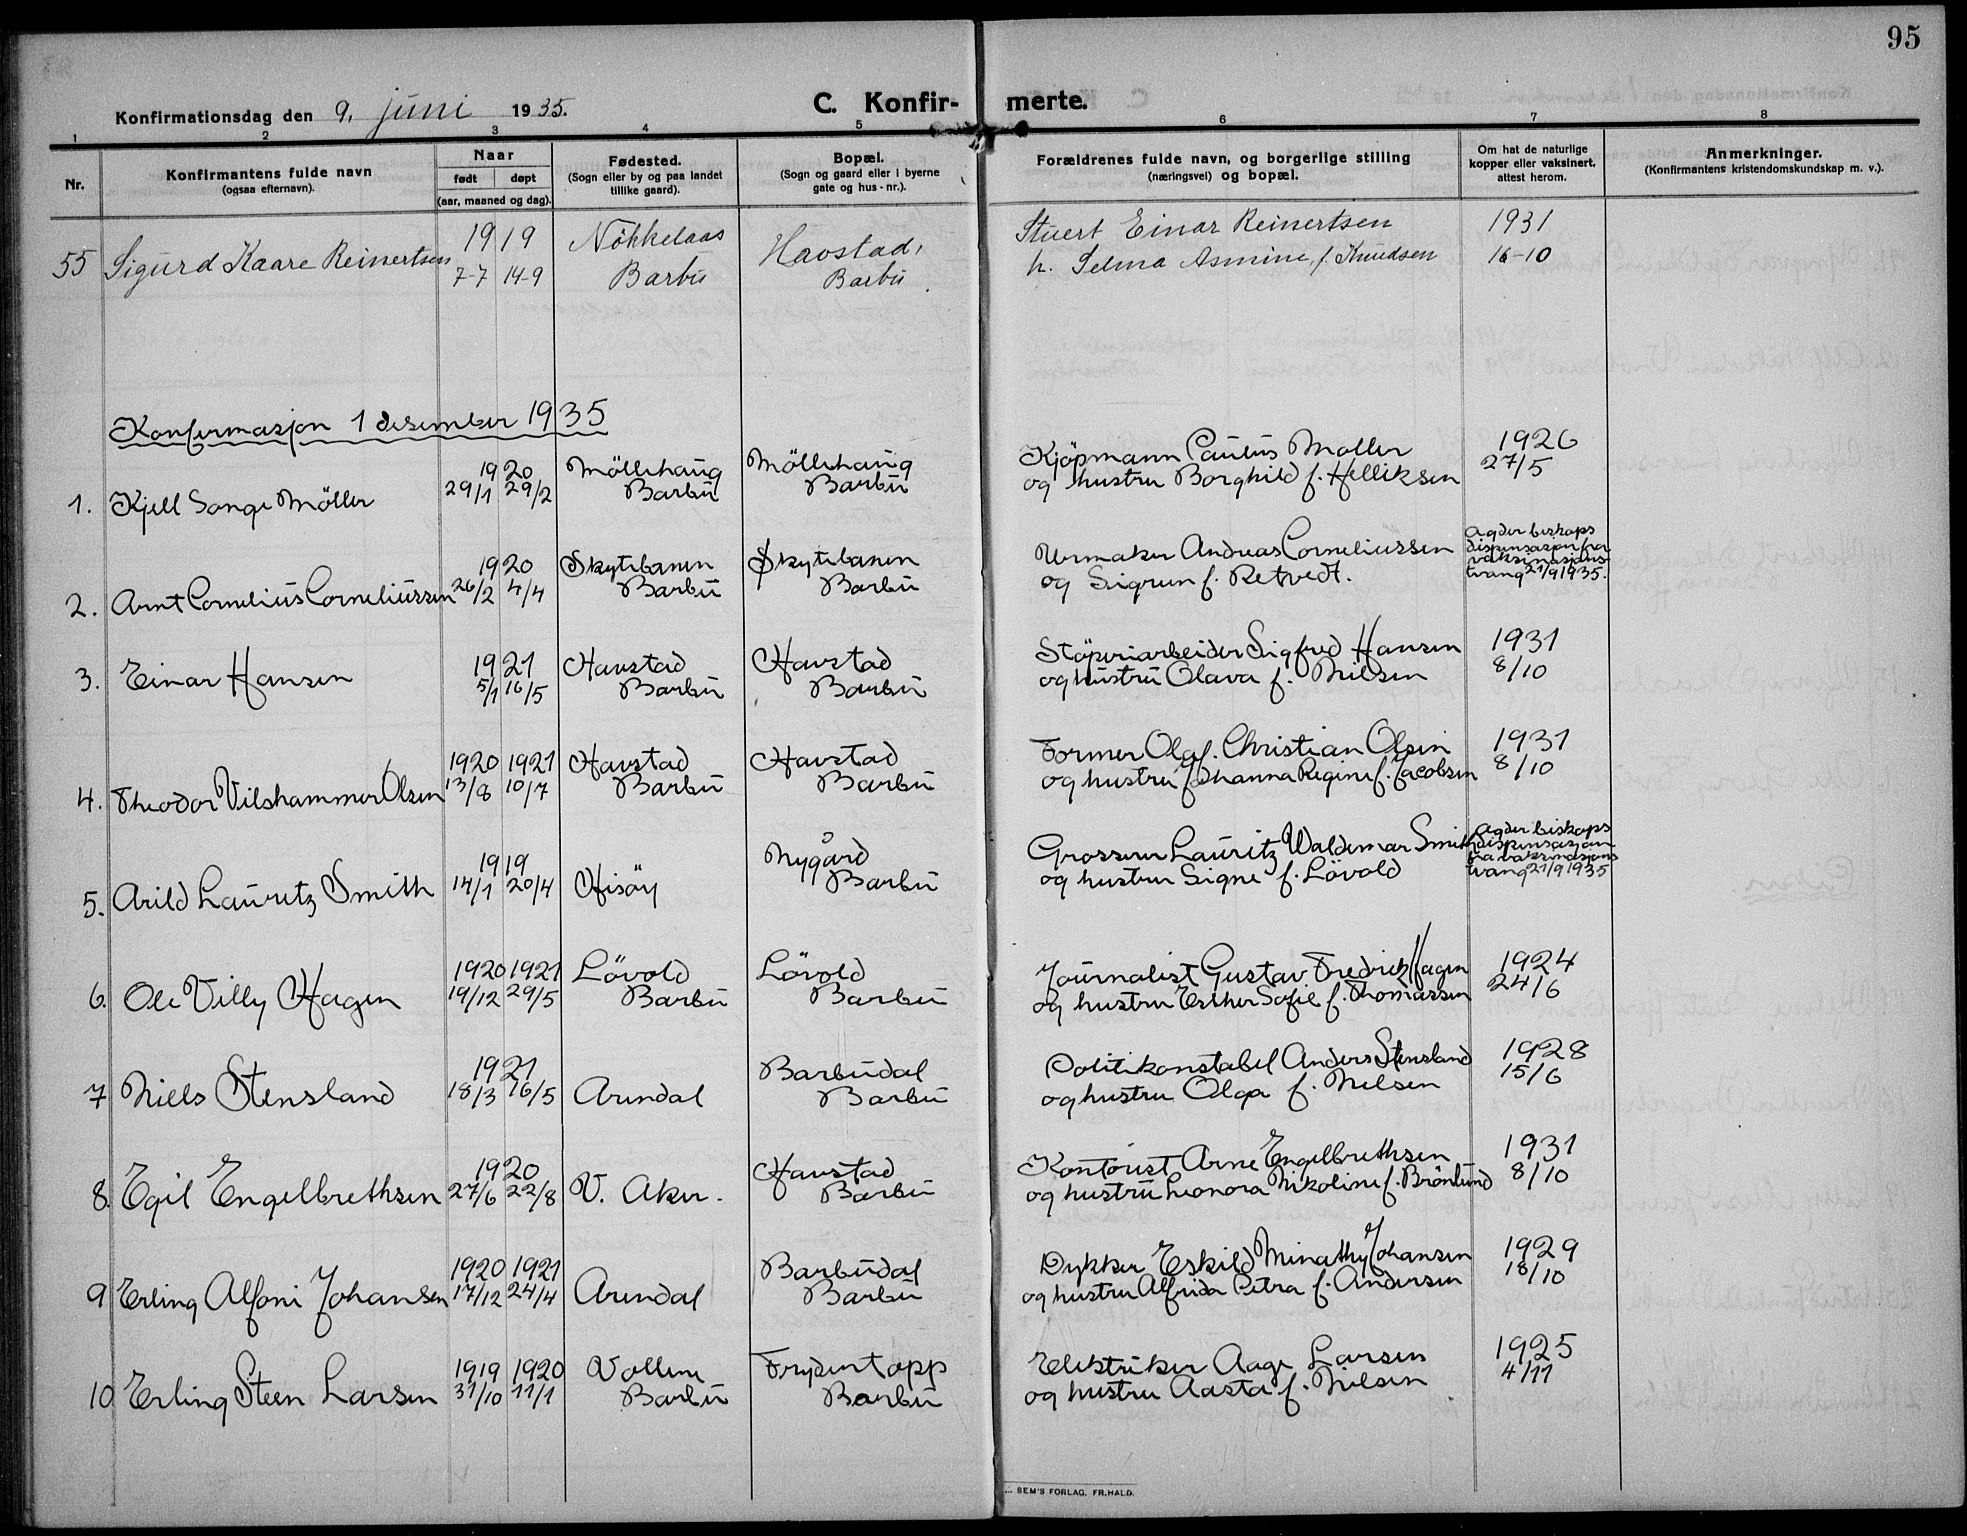 95
Konfirmationsdag den 9. juni 1935.
C. Konfir- merte.
1 2 3 4 5 6 7 8
Nr.
Konfirmantens fulde navn
(ogsaa efternavn).
Naar
født døpt
(aar, maaned og dag).
Fødested.
(Sogn eller by og paa landet
tillike gaard).
Bopæl.
(Sogn og gaard eller i byerne
gate og hus-nr.).
Forældrenes fulde navn, og borgerlige stilling
(næringsvei) og bopæl.
Om hat de naturlige
kopper eller vaksinert,
attest herom.
Anmerkninger.
(Konfirmantens kristendomskundskap m. v.).
1919 Nökkelaas Havstad, Stuert Einar Reinertsen 1931
55 Sigurd Kaare Reinertsen 7-7 14-9 Barbu Barbu. h. Selma Asmine, f. Knudsen 16-10
Konfirmasjon 1 desember 1935
1920 Möllehaug Möllehaug Kjöpmann Paulus Møller 1926
1. Kjell Songe Möller 29/1 29/2 Barbu Barbu og hustru Borghild f. Helliksen 27/5
1920 Skytebanen Skytebanen Urmaker Andreas Corneliussen Agder biskops
dispensasjon fra
vaksinasjons-
tvang 21/9 1935.
2. Arnt Cornelius Corneliussen 26/2 4/4 Barbu Barbu og Sigrun f. Retvedt.
1921 Havstad Havstad Stöperiarbeider Sigfred Hansen 1931
3. Einar Hansen 5/1 16/5 Barbu Barbu og hustru Olava f. Nilsen 8/10
1920 1921 Havstad Havstad Former Olaf. Christian Olsen 1931
4. Theodor Vilshammer Olsen 13/8 10/7 Barbu Barbu og hustru Johanna Regine f. Jacobsen 8/10
1919 Nygård Grosserer Lauritz Waldemar Smith Agder biskops
dispensasjon
fra vaksinasjons
tvang 21/9 1935
5. Arild Lauritz Smith 14/1 20/4 Hisöy Barbu og hustru Signe f. Lövold
1920 1921 Lövold Lövold Journalist Gustav Fredrik Hagen 1924
6. Ole Villy Hagen 19/12 29/5 Barbu Barbu og hustru Esther Sofie f. Thomassen 24/6
1921 Barbudal Politikonstabel Anders Stensland 1928
7 Niels Stensland 18/3 16/5 Arendal Barbu og hustru Olga f. Nilsen 15/6
1920 Havstad Kontorist Arne Engelbrethsen 1931
8. Egil Engelbrethsen 27/6 22/8 V. Aker. Barbu og hustru Leonora Nikoline f. Brönlund 8/10
1920 1921 Barbudal Dykker Eskild Minathy Johansen 1929
9 Erling Alfoni Johansen 17/12 24/4 Arendal Barbu og hustru Alfrida Petra f. Andersen 18/10
1919 1920 Vollene Frydentopp Elektriker Aage Larsen 1925
10 Erling Steen Larsen 31/10 11/1 Barbu Barbu og hustru Aasta f. Nilsen 4/11
SEM'S FORLAG, FR.HALD.